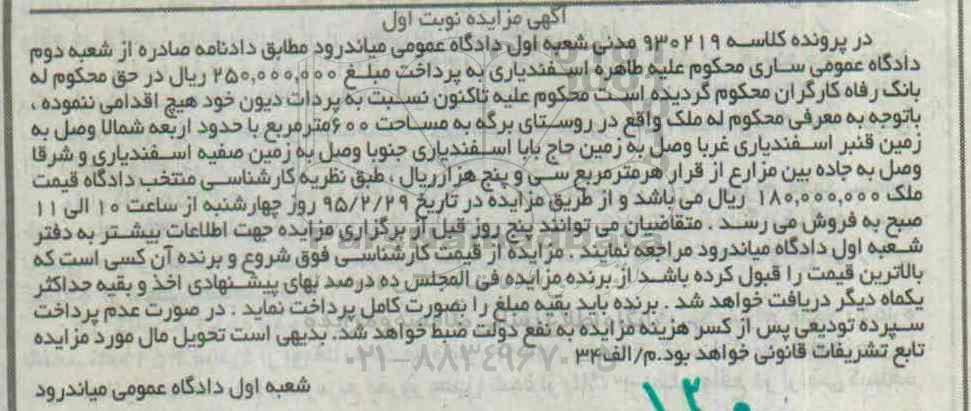 آگهی مزایده نوبت اول
در پرونده کلاسه ۹۳۰۲۱۹ مدنی شعبه اول دادگاه عمومی میاندرود مطابق دادنامه صادره از شعبه دوم
دادگاه عمومی ساری محکوم علیه طاهره اسفندیاری به پرداخت مبلغ ۲۵۰,۰۰۰,۰۰۰ ریال در حق محکوم له
بانک رفاه کارگران محکوم گردیده است محکوم علیه تاکنون نسبت به پرداخت دیون خود هیچ اقدامی ننموده ،
باتوجه به معرفی محکوم له ملک واقع در روستای برگه به مساحت ۶۰۰مترمربع با حدود اربعه شمالا وصل به
زمین قنبر اسفندیاری غربا وصل به زمین حاج بابا اسفندیاری جنوبا وصل به زمین صفیه اسفندیاری و شرقا
وصل به جاده بین مزارع از قرار هرمترمربع سی و پنج هزارریال ، طبق نظریه کارشناسی منتخب دادگاه قیمت
ملک ۱۸۰,۰۰۰,۰۰۰ ریال می باشد و از طریق مزایده در تاریخ ۹۵/۲/۲۹ روز چهارشنبه از ساعت ۱۰ الی ۱۱
صبح به فروش می رسد . متقاضیان می توانند پنج روز قبل از برگزاری مزایده جهت اطلاعات بیشتر به دفتر
شعبه اول دادگاه میاندرود مراجعه نمایند . مزایده از قیمت کارشناسی فوق شروع و برنده آن کسی است که
بالاترین قیمت را قبول کرده باشد از برنده مزایده فی المجلس ده درصد بهای پیشنهادی اخذ و بقیه حداکثر
یکماه دیگر دریافت خواهد شد . برنده باید بقیه مبلغ را بصورت کامل پرداخت نماید . در صورت عدم پرداخت
سپرده تودیعی پس از کسر هزینه مزایده به نفع دولت ضبط خواهد شد. بدیهی است تحویل مال مورد مزایده
تابع تشریفات قانونی خواهد بود.م/الف۳۴
۰۲۱-۸۸۳۴۹۶۷۰
شعبه اول دادگاه عمومی میاندرود